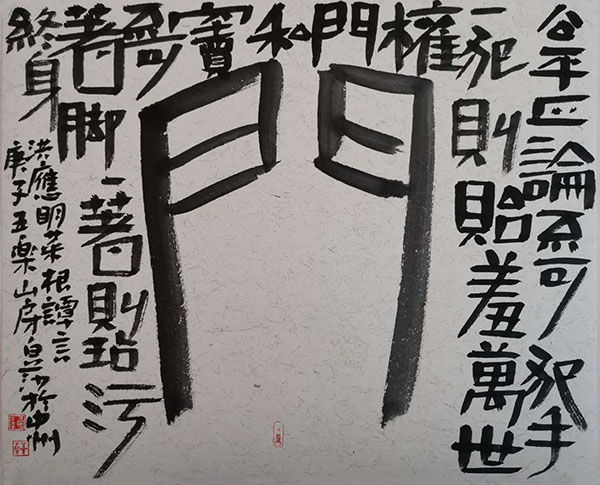 公平正論不可犯手
一犯則貽羞萬世
權門私竇不可
門
著脚一著則玷污
終身
洪應明菜根譚言
庚子五樂山房於中州